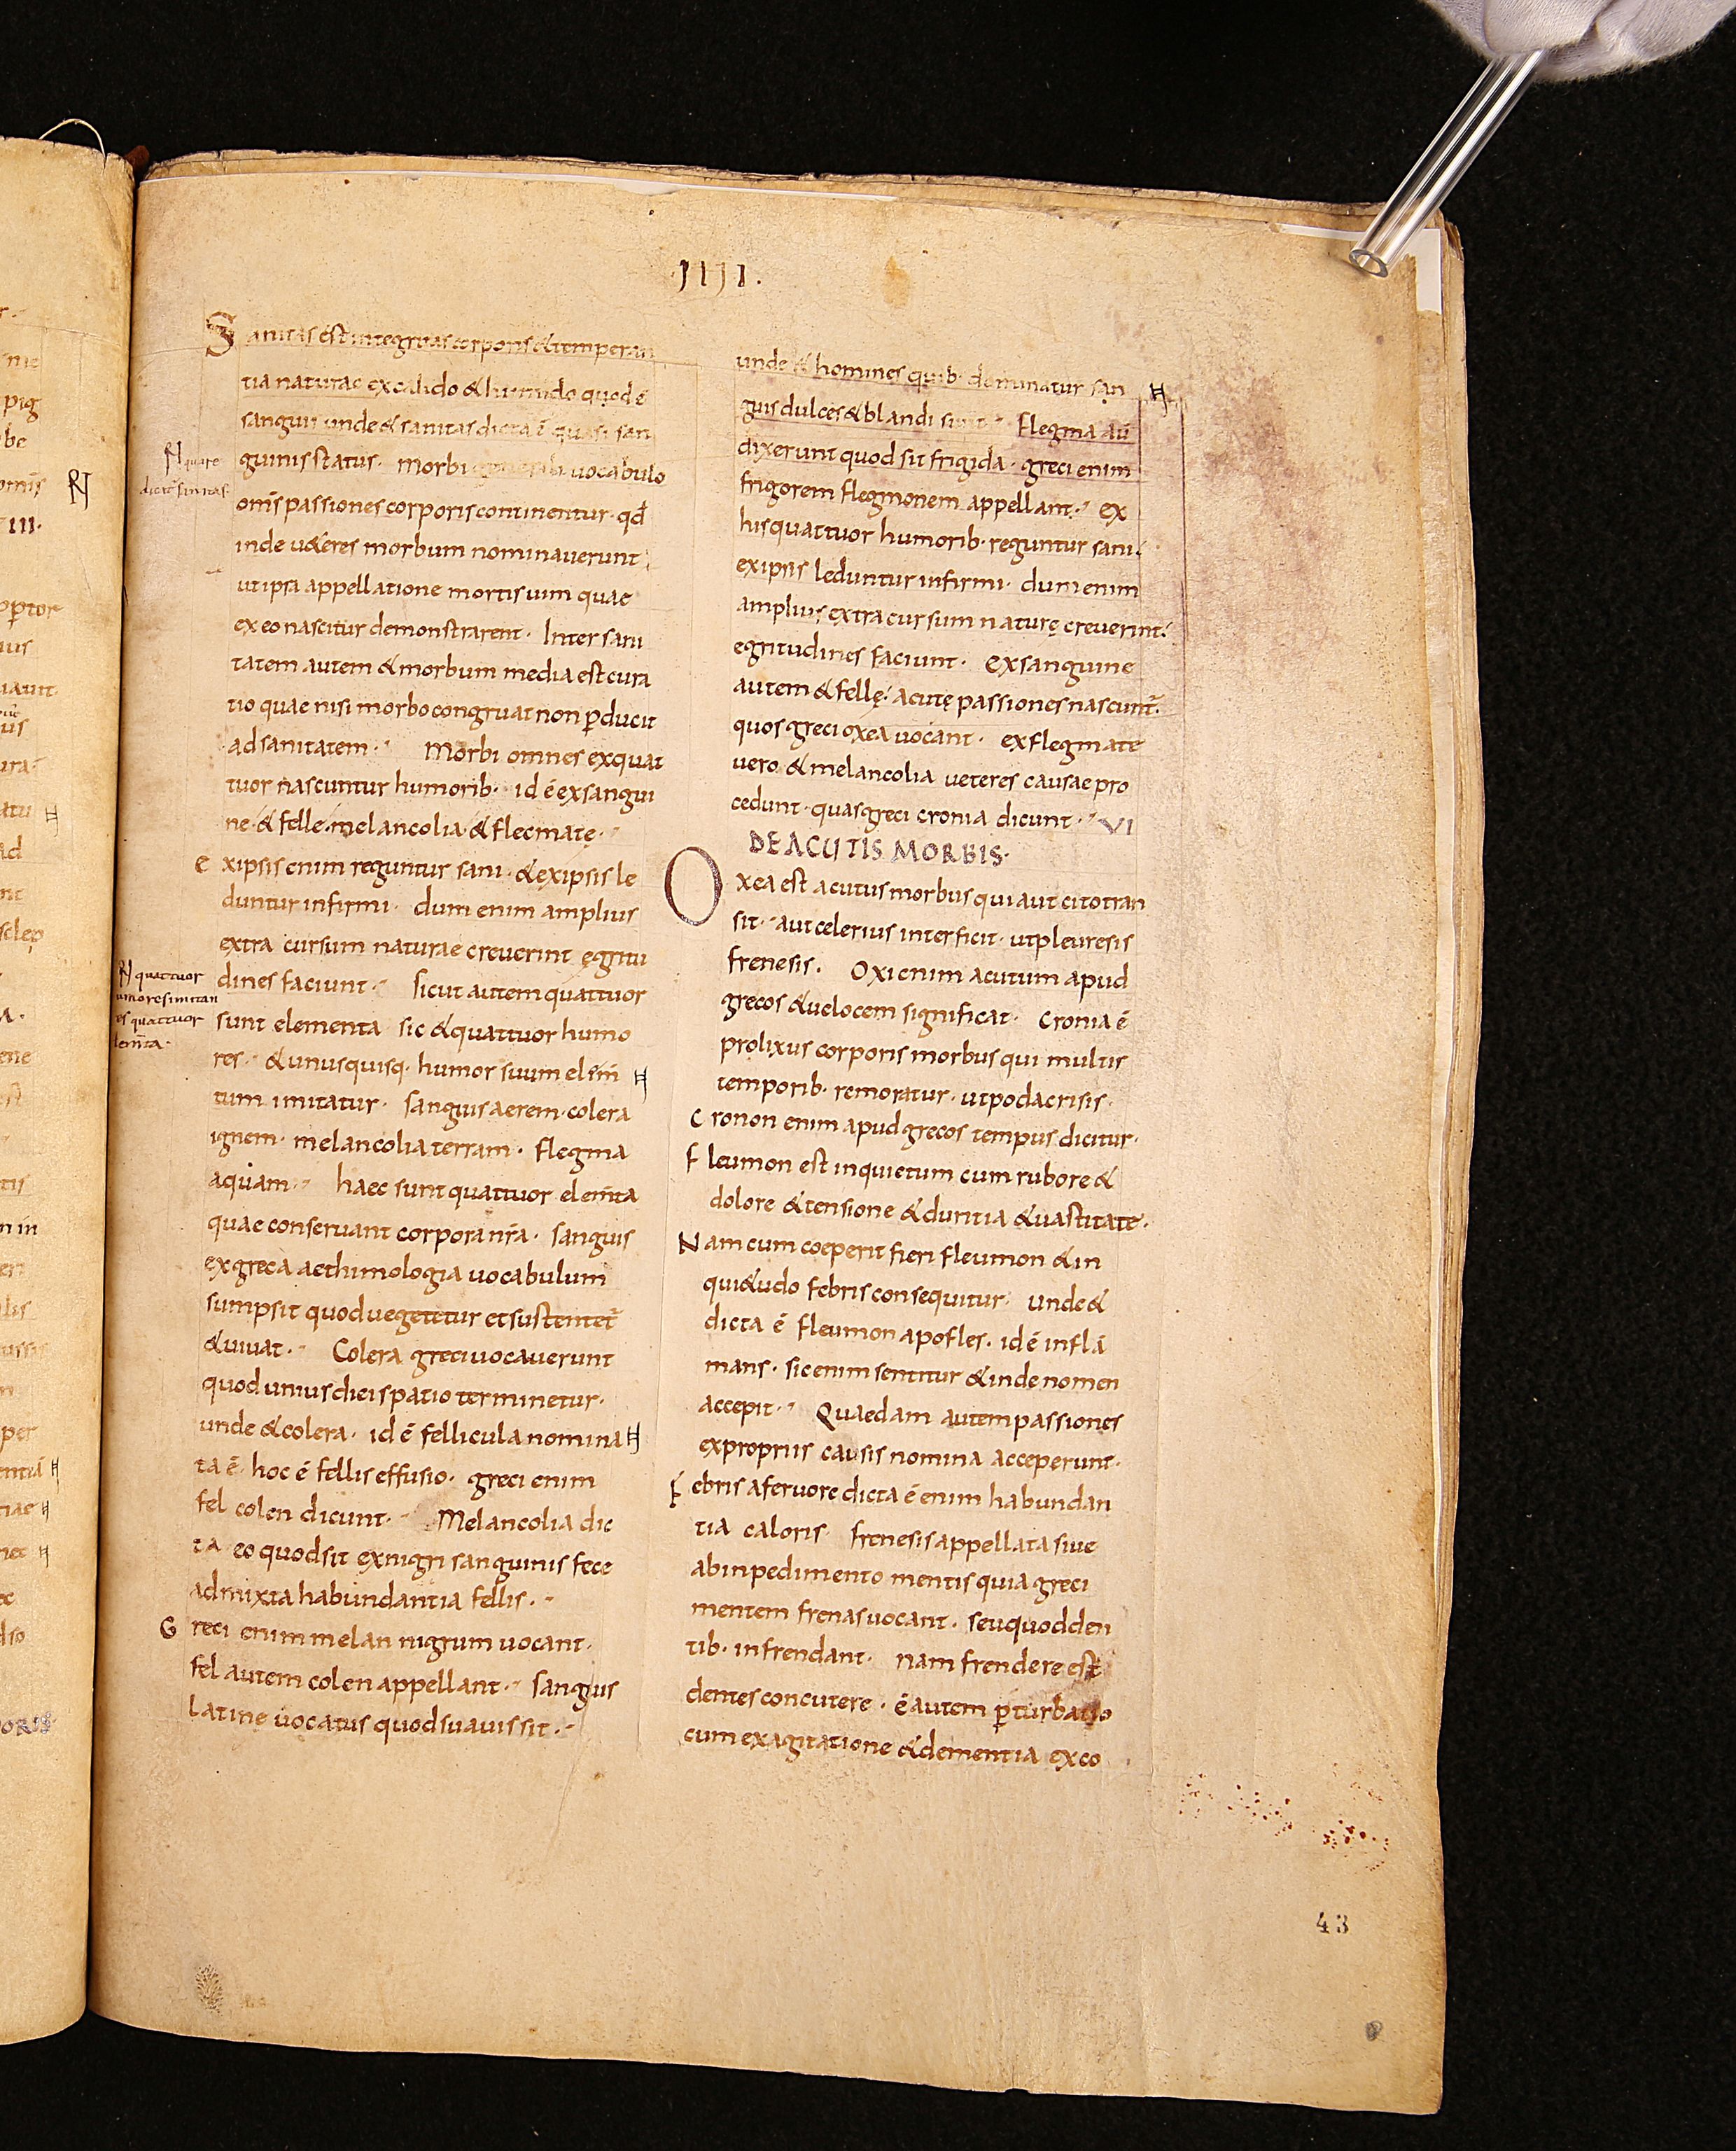 .IIII.
Sanitas est integritas corporis & temperan
tia naturae ex calido & humido quod ē
sanguis unde & sanitas dicta ē quasi san
guinis status. Morbi generali uocabulo
om̄s passiones corporis continentur. qd̄
inde u&eres morbum nominauerunt
ut ipsa appellatione mortis uim quae
ex eo nascitur demonstrarent. Inter sani
tatem autem & morbum media est cura
tio quae nisi morbo congruat non ꝑducit
ad sanitatem. Morbi omnes ex quat
tuor nascuntur humorib. id ē ex sangui
ne. & felle. melancolia. & flecmate.
Exipsis enim reguntur sani. & ex ipsis le
duntur infirmi. dum enim amplius
extra cursum naturae creuerint ęgritu
dines faciunt. Sicut autem quattuor
sunt elementa sic & quattuor humo
res. & unusquisq. humor suum elem̄
tum imitatur. sanguis aerem. colera
ignem. melancolia terram. flegma
aquam. haec sunt quattuor elem̄ta
quae conseruant corpora nr̄a. sanguis
ex greca aethimologia uocabulum
sumpsit quod uegetetur et sustentet̄
& uiuat. Colera greci uocauerunt
quod unius diei spatio terminetur.
unde & colera. id ē fellicula nomina
ta ē. hoc ē fellis effusio. greci enim
fel colen dicunt. Melancolia dic
ta eo quod sit ex nigri sanguinis fece
admixta habundantia fellis.
Greci enim melan nigrum uocant.
fel autem colen appellant. Sanguis
Latine uocatus quod suauis sit.
N quare
dicit̄ sanitas
N quattuor
umores imitan
quattuor
lem̄ta.
unde & homines quib. dominatur san
guis dulces & blandi sunt. Flegma aū
dixerunt quod sit frigida. greci enim
frigorem flegmonem appellant. ex
his quattuor humorib. reguntur sani.
ex ipsis leduntur infirmi. dum enim
amplius extra cursum naturę creuerint.
egritudines faciunt. ex sanguine
autem & fellę. acutę passiones nascunt̄.
quos greci oxea uocant. ex flegmate
uero & melancolia ueteres causae pro
cedunt. quas greci cronia dicunt. VI
DE ACUTIS MORBIS.
Oxea est acutus morbus qui aut cito tran
sit. aut celerius interficit. ut pleuresis
frenesis. Oxi enim acutum apud
grecos & uelocem significat. Cronia ē
prolixus corporis morbus qui multis
temporib. remoratur. ut podacrisis.
Cronon enim apud grecos tempus dicitur.
Fleumon est inquietum cum rubore &
dolore & tensione & duritia & uastitate.
Nam cum coeperit fieri fleumon & in
qui&udo febris consequitur. unde &
dicta ē fleumon apofles. id ē inflā
mans. sic enim sentitur & inde nomen
accepit. Quaedam autem passiones
ex propriis causis nomina acceperunt.
Febris a feruore dicta ē enim habundan
tia caloris. frenesis appellata siue
ab inpedimento mentis quia greci
mentem frenas uocant. seu quod den
tib. infrendant. nam frendere est
dentes concutere. ē autem ꝑturbatio
cum exagitatione & dementia ex co
43